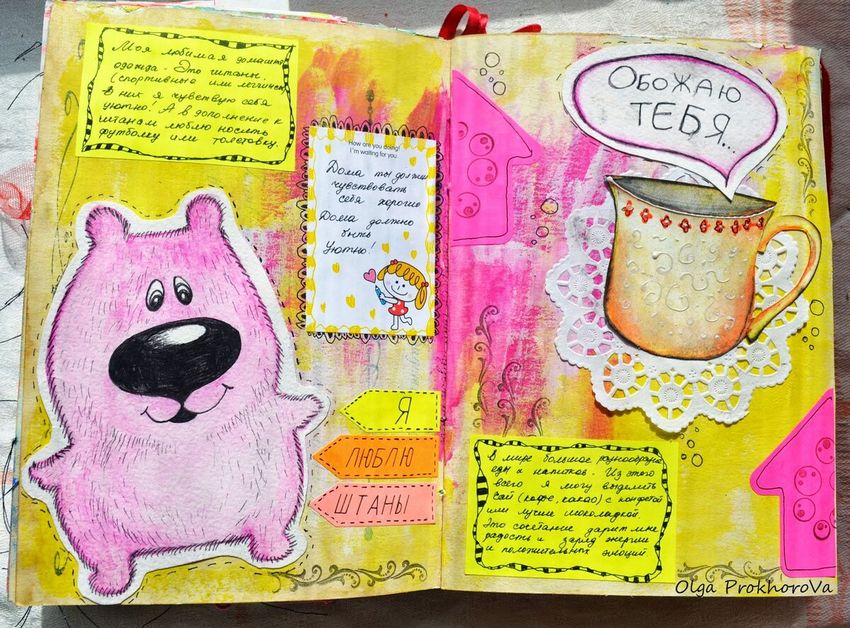 Моя любимая домашняя
одежда - Это штаны.
(спортивные или легинсы)
В них я чувствую себя
уютно! А в дополнение к
штанам люблю носить
футболку или толстовку.
How are you doing?
I'm waiting for you
Дома ты должен
чувствовать
себя хорошо
Дома должно
быть
Уютно!
Я
ЛЮБЛЮ
ШТАНЫ
ОБОЖАЮ
ТЕБЯ...
В мире большое разнообразие
еды и напитков. Из этого
всего я могу выделить
чай (кофе, какао) с конфетой
или лучше шоколадкой
Это сочетание дарит мне
радость и заряд энергии
и положительных эмоций
Olga ProkhoroVa